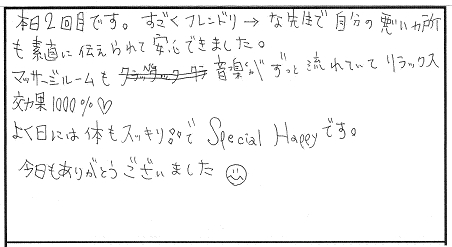 本日2回目です。すごくフレンドリーな先生で自分の悪いヵ所
も素直に伝えられて安心できました。
マッサージルームも 音楽がずっと流れていてリラックス
効果1000%♡
よく日には体もスッキリ。。でSpecial Happyです。
今日もありがとうございました☺